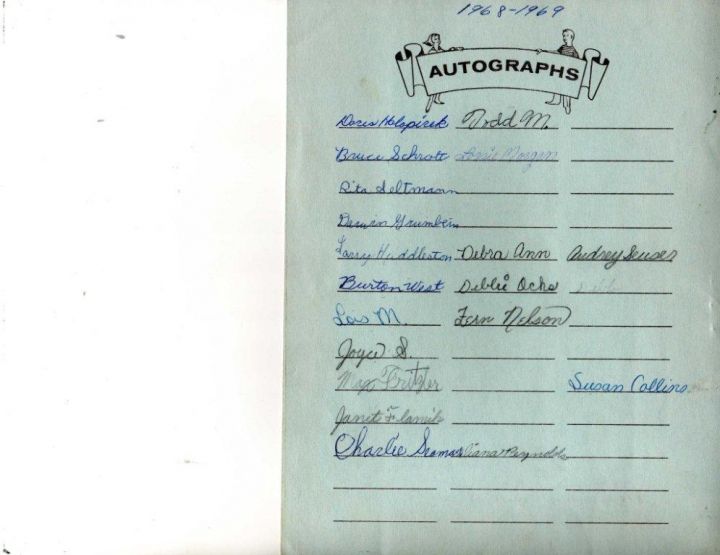 1968-1969
AUTOGRAPHS
Doris Holopirek Todd M.
Bruce Schrott Lonnie Morgan
Rita Seltmann
Derwin Grumbein
Larry Huddleston Debra Ann Audrey Seuser
Burton West Debbie Ochs
Lois M. Fern Nelson
Joyce S.
Max Fritzler Susan Collins
Janet Flamik
Charlie Seaman Diana Reynolds